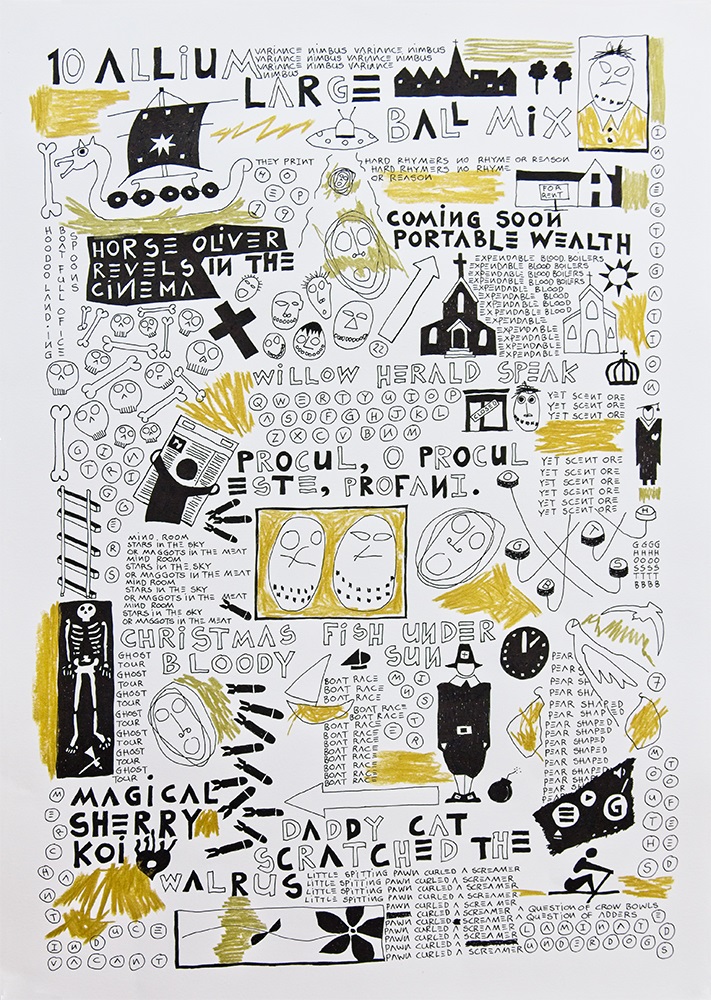 10 ALLIUM
VARIANCE NIMBUS VARIANCE NIMBUS
VARIANCE NIMBUS VARIANCE NIMBUS
VARIANCE NIMBUS VARIANCE
NIMBUS
LARGE
BALL MIX
THEY PRINT
HARD RHYMERS NO RHYME OR REASON
HARD RHYMERS NO RHYME
OR REASON
FOR
RENT
INVESTIGATION
COMING SOON
PORTABLE WEALTH
HORSE OLIVER
REVELS IN THE
CINEMA
HOODOO LAND·ING
BOAT FULL OF ICE
SPOONS
EXPENDABLE BLOOD BOILERS
EXPENDABLE BLOOD BOILERS
EXPENDABLE BLOOD BOILERS
EXPENDABLE BLOOD BOILERS
EXPENDABLE BLOOD
EXPENDABLE BLOOD
EXPENDABLE BLOOD
EXPENDABLE
EXPENDABLE
EXPENDABLE
EXPENDABLE
22
WILLOW HERALD SPEAK
QWERTYUIOP
ASDFGHJKL
ZXCVBNM
CLOSED
YET SCENT ORE
YET SCENT ORE
YET SCENT ORE
PROCUL, O PROCUL
ESTE, PROFANI.
YET SCENT ORE
YET SCENT ORE
YET SCENT ORE
YET SCENT ORE
YET SCENT ORE
MIND ROOM
STARS IN THE SKY
OR MAGGOTS IN THE MEAT
MIND ROOM
STARS IN THE SKY
OR MAGGOTS IN THE MEAT
MIND ROOM
STARS IN THE SKY
OR MAGGOTS IN THE MEAT
MIND ROOM
STARS IN THE SKY
OR MAGGOTS IN THE MEAT
GGGG
HHHH
OOOO
SSSS
TTTT
BBBB
CHRISTMAS FISH UNDER
BLOODY SUN
GHOST
TOUR
GHOST
TOUR
GHOST
TOUR
GHOST
TOUR
GHOST
TOUR
GHOST
TOUR
BOAT RACE
BOAT RACE
BOAT RACE
BOAT RACE
BOAT RACE
BOAT RACE
BOAT RACE
BOAT RACE
BOAT RACE
BOAT RACE
MINSTER
PEAR
PEARS
PEAR SH
PEAR SHA
PEAR SHAPED
PEAR SHAPED
PEAR SHAPED
PEAR SHAPED
PEAR SHAPED
PEAR SHAPED
PEAR SHAPED
7
MAGICAL
SHERRY
KOI
DADDY CAT
SCRATCHED THE
WALRUS
MERCHANT
LITTLE SPITTING PAWN CURLED A SCREAMER
LITTLE SPITTING PAWN CURLED A SCREAMER
LITTLE SPITTING PAWN CURLED A SCREAMER
LITTLE SPITTING PAWN CURLED A SCREAMER
PAWN CURLED A SCREAMER
PAWN CURLED A SCREAMER
PAWN CURLED A SCREAMER
PAWN CURLED A SCREAMER
PAWN CURLED A SCREAMER
A QUESTION OF CROW BOWLS
A QUESTION OF ADDERS
LAMINATED
UNDERDOGS
INDUCE
VACANT